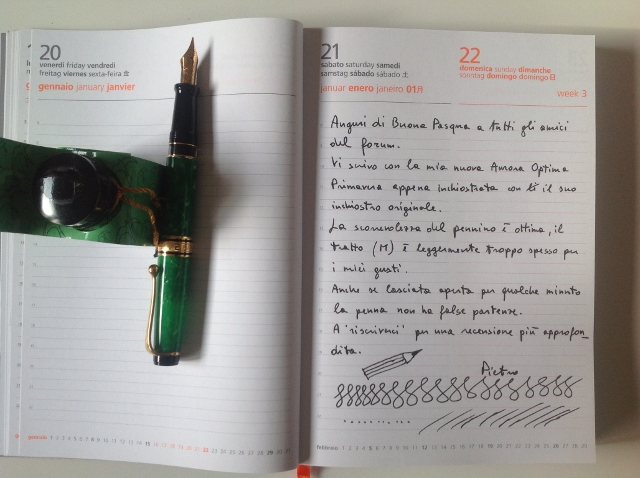 20
venerdì friday vendredi
freitag viernes sexta-feira 金
gennaio january janvier
21
sabato saturday samedi
samstag sábado sábado 土
januar enero janeiro 01月
22
domenica sunday dimanche
sonntag domingo domingo 日
week 3
Auguri di Buona Pasqua a tutti gli amici
del forum.
Vi scrivo con la mia nuova Aurora Optima
Primavera appena inchiostrata con il suo
inchiostro originale.
La scorrevolezza del pennino è ottima, il
tratto (M) è leggermente troppo spesso per
i miei gusti.
Anche se lasciata aperta per qualche minuto
la penna non ha false partenze.
A 'riscriverci' per una recensione più approfon_
dita.
Pietro
gennaio 1 2 3 4 5 6 7 8 9 10 11 12 13 14 15 16 17 18 19 20 21 22 23 24 25 26 27 28 29 30 31
febbraio 1 2 3 4 5 6 7 8 9 10 11 12 13 14 15 16 17 18 19 20 21 22 23 24 25 26 27 28 29